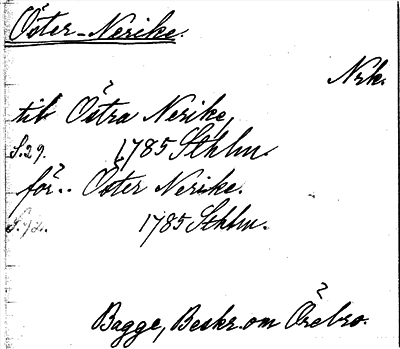 Öster-Nerike.
Nrk.
till Östra Nerike,
S.29. 1785 Sthlm.
för.. Öster Nerike.
1785 Sthlm.
Bagge, Beskr. om Örebro.